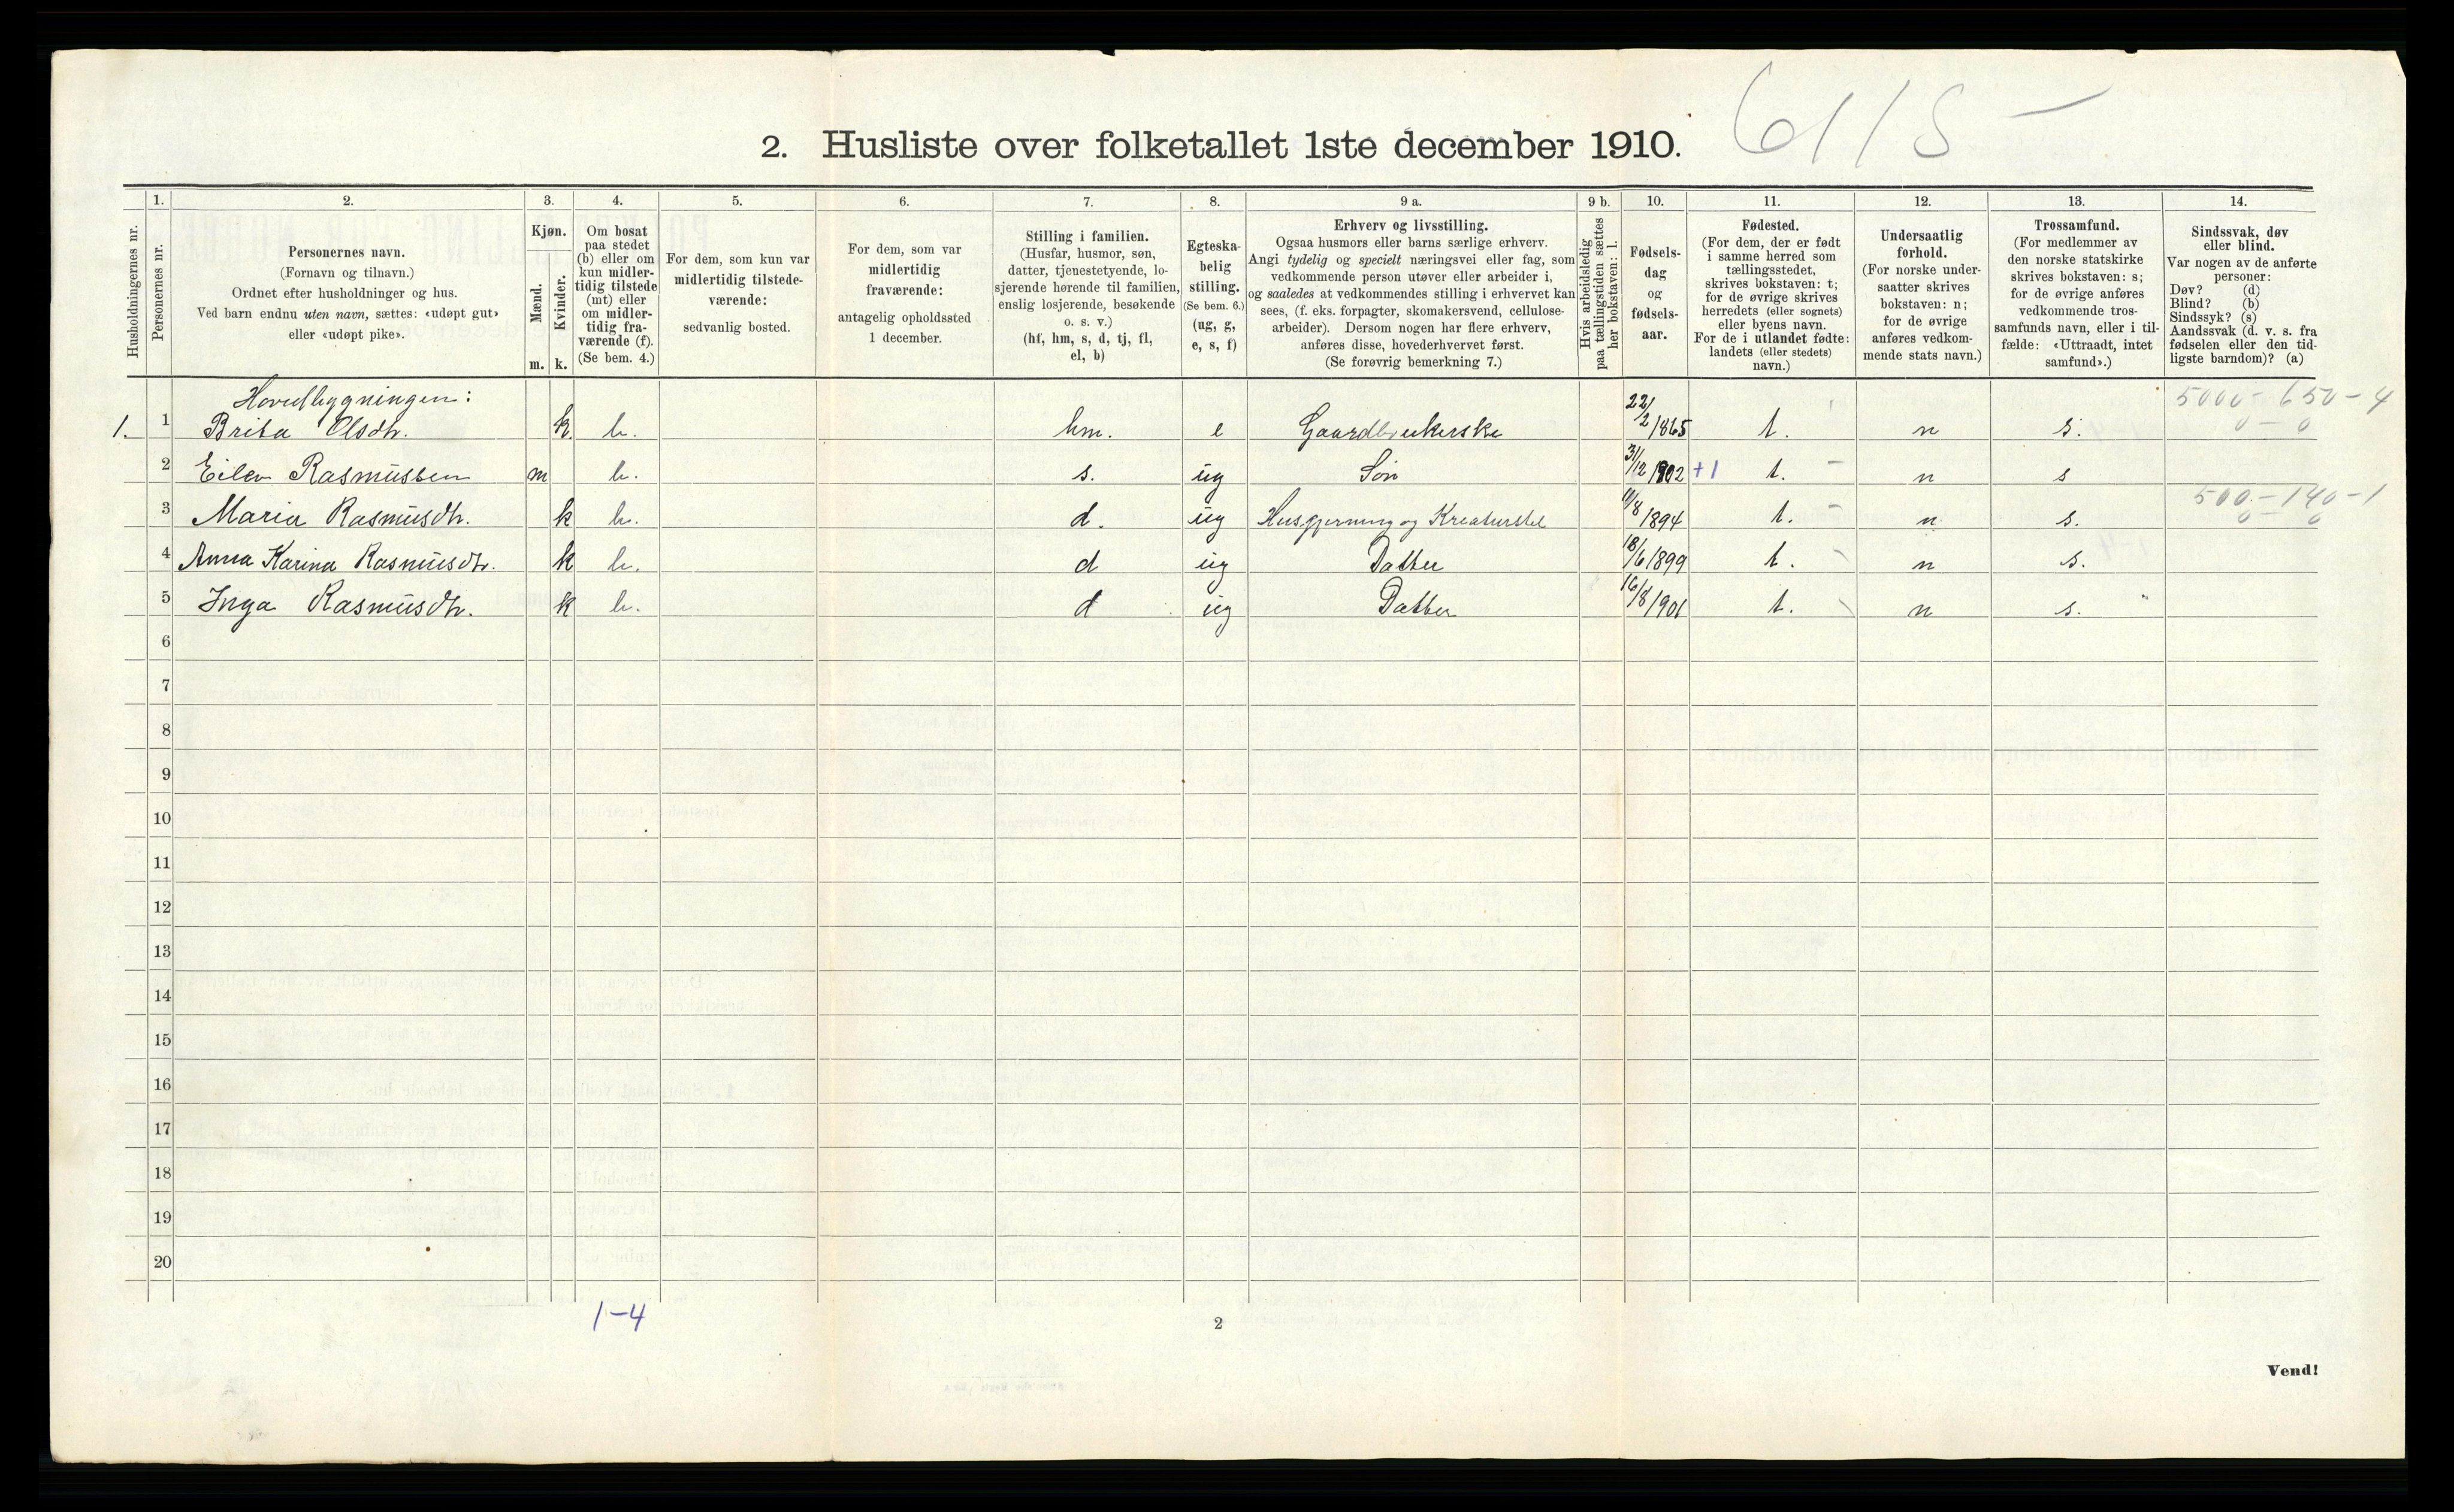 6115 —
2. Husliste over folketallet 1ste december 1910.
Husholdningernes nr.
1. Personernes nr.
2. Personernes navn.
(Fornavn og tilnavn.)
Ordnet efter husholdninger og hus.
Ved barn endnu uten navn, sættes: «udøpt gut»
eller «udøpt pike».
3. Kjøn.
Mænd. Kvinder.
m. k.
4. Om bosat
paa stedet
(b) eller om
kun midler-
tidig tilstede
(mt) eller
om midler-
tidig fra-
værende (f).
(Se bem. 4.)
5. For dem, som kun var
midlertidig tilstede-
værende:
sedvanlig bosted.
6. For dem, som var
midlertidig
fraværende:
antagelig opholdssted
1 december.
7. Stilling i familien.
(Husfar, husmor, søn,
datter, tjenestetyende, lo-
sjerende hørende til familien,
enslig losjerende, besøkende
o. s. v.)
(hf, hm, s, d, tj, fl,
el, b)
8. Egteska-
belig
stilling.
(Se bem. 6.)
(ug, g,
e, s, f)
9 a. Erhverv og livsstilling.
Ogsaa husmors eller barns særlige erhverv.
Angi tydelig og specielt næringsvei eller fag, som
vedkommende person utøver eller arbeider i,
og saaledes at vedkommendes stilling i erhvervet kan
sees, (f. eks. forpagter, skomakersvend, cellulose-
arbeider). Dersom nogen har flere erhverv,
anføres disse, hovederhvervet først.
(Se forøvrig bemerkning 7.)
9 b. Hvis arbeidsledig
paa tællingstiden sættes
her bokstaven: l.
10. Fødsels-
dag
og
fødsels-
aar.
11. Fødested.
(For dem, der er født
i samme herred som
tællingsstedet,
skrives bokstaven: t;
for de øvrige skrives
herredets (eller sognets)
eller byens navn.
For de i utlandet fødte:
landets (eller stedets)
navn.)
12. Undersaatlig
forhold.
(For norske under-
saatter skrives
bokstaven: n;
for de øvrige
anføres vedkom-
mende stats navn.)
13. Trossamfund.
(For medlemmer av
den norske statskirke
skrives bokstaven: s;
for de øvrige anføres
vedkommende tros-
samfunds navn, eller i til-
fælde: «Uttraadt, intet
samfund».)
14. Sindssvak, døv
eller blind.
Var nogen av de anførte
personer:
Døv? (d)
Blind? (b)
Sindssyk? (s)
Aandssvak (d. v. s. fra
fødselen eller den tid-
ligste barndom)? (a)
Hovedbygningen: 5000 - 650 - 4
1. 1 Brita Olsdtr. k b. hm. e Gaardbrukerske 22/2 1865 t. n s. 0 — 0
2 Eilev Rasmussen m b. s. ug Søn 31/12 1902 +1 t. n s
3 Maria Rasmusdtr. k b. d. ug Husgjerning og Kreaturstel 11/8 1894 t. n s. 500 - 140 - 1
0 — 0
4 Anna Karina Rasmusdtr. k b. d ug Datter 18/6 1899 t. n s.
5 Inga Rasmusdtr. k b. d ug Datter 16/8 1901 t. n s.
6
7
8
9
10
11
12
13
14
15
16
17
18
19
20
1-4
2
Vend!